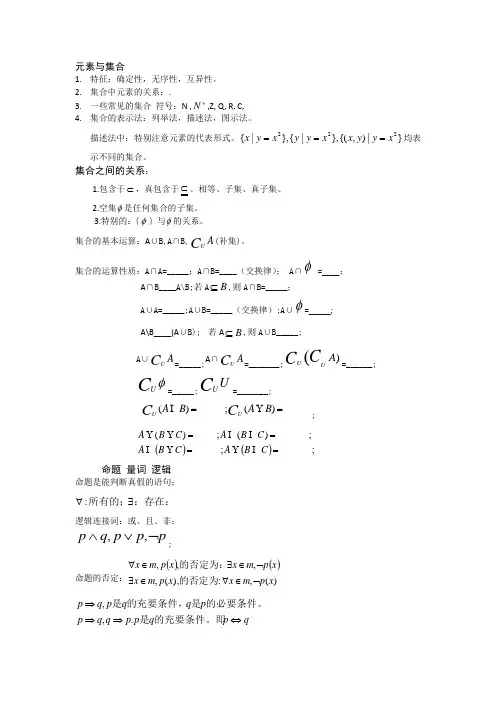 元素与集合
1. 特征：确定性，无序性，互异性。
2. 集合中元素的关系：.
3. 一些常见的集合 符号：N , N⁺ ,Z, Q, R, C,
4. 集合的表示法：列举法，描述法，图示法。
描述法中：特别注意元素的代表形式。{x | y = x²},{y | y = x²},{(x, y) | y = x²}均表
示不同的集合。
集合之间的关系：
1.包含于⊂，真包含于⊆。相等、子集、真子集。
2.空集ϕ是任何集合的子集。
3.特别的：{ϕ} 与ϕ的关系。
集合的基本运算：A∪B, A∩B, C_U A (补集)。
集合的运算性质：A∩A=_____；A∩B=____（交换律）； A∩ϕ =____；
A∩B____A\B;若 A⊆B ,则 A∩B=_____；
A∪A=_____;A∪B=_____（交换律）;A∪ϕ=_____;
A\B____(A∪B)； 若 A⊆B ,则 A∪B_____；
A∪C_U A=_____;A∩C_U A=_______;C_U (C_U A)=______;
C_U ϕ=_____;C_U U=_______;
C_U (A I B) = ;C_U (A Y B) = ;
A Y (B Y C) = ;A I (B I C) = ;
A I (B Y C) = ;A Y (B I C) = ;
命题 量词 逻辑
命题是能判断真假的语句；
∀：所有的；∃：存在：
逻辑连接词：或、且、非；
p ∧ q, p ∨ p, ¬p ；
命题的否定：∀x ∈ m, p(x),的否定为：∃x ∈ m, ¬p(x)
∃x ∈ m, p(x),的否定为：∀x ∈ m, ¬p(x)
p ⇒ q, p是q的充要条件，q是p的必要条件。
p ⇒ q, q ⇒ p. p是q的充要条件。即p ⇔ q